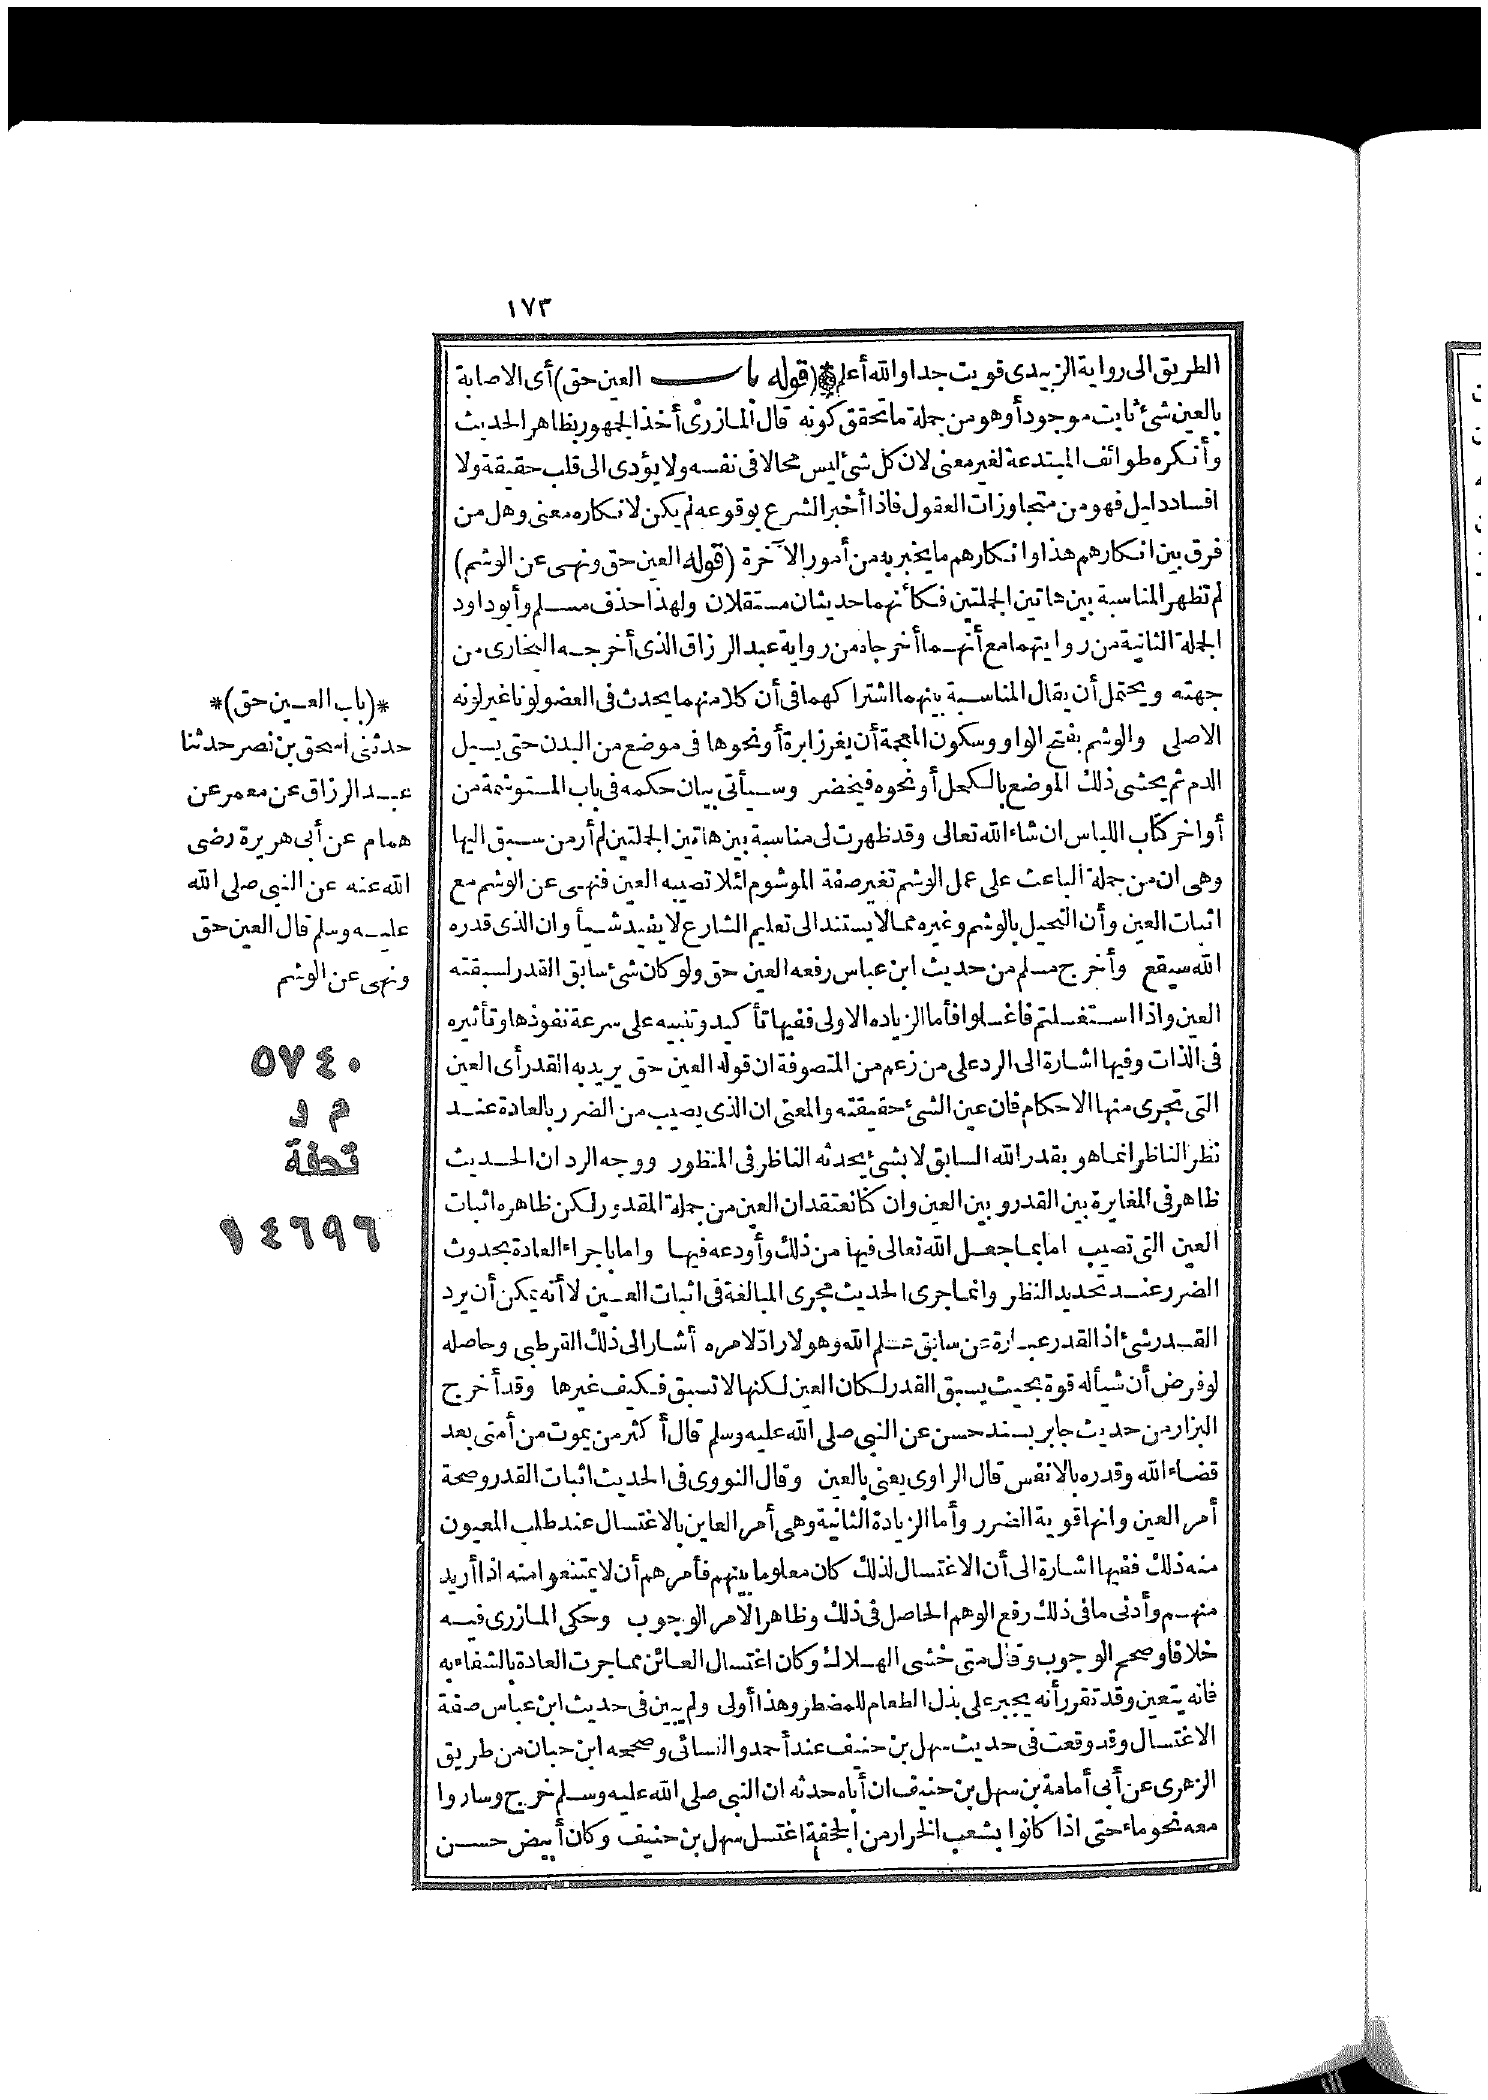 ١٧٣
الطريق الى رواية الزبيدى قويت جدا والله أعلم ❊(قوله باب العين حق) أى الاصابة
بالعين شئ ثابت موجود أو هو من جملة ما تحقق كونه قال المازرى أخذ الجمهور بظاهر الحديث
وأنكره طوائف المبتدعة لغير معنى لان كل شئ ليس محالا فى نفسه ولا يؤدى الى قلب حقيقة ولا
افساد دليل فهو من متجاوزات العقول فاذا أخبر الشرع بوقوعه لم يكن لانكاره معنى وهل من
فرق بين انكارهم هذا وانكارهم ما يخبر به من أمور الآخرة (قوله العين حق ونهى عن الوشم)
لم تظهر المناسبة بين هاتين الجملتين فكأنهما حديثان مستقلان ولهذا حذف مسلم وأبو داود
الجملة الثانية من روايتهما مع أنهما أخرجاه من رواية عبد الرزاق الذى أخرجه البخارى من
جهته ويحتمل أن يقال المناسبة بينهما اشتراكهما فى أن كلا منهما يحدث فى العضو لونا غير لونه
الاصلى والوشم بفتح الواو وسكون المعجمة أن يغرز ابرة أو نحوها فى موضع من البدن حتى يسيل
الدم ثم يحشى ذلك الموضع بالكحل أو نحوه فيخضر وسيأتى بيان حكمه فى باب المستوشمة من
أواخر كتاب اللباس ان شاء الله تعالى وقد ظهرت لى مناسبة بين هاتين الجملتين لم أر من سبق اليها
وهى ان من جملة الباعث على عمل الوشم تغير صفة الموشوم لئلا تصيبه العين فنهى عن الوشم مع
اثبات العين وأن التحيل بالوشم وغيره مما لا يستند الى تعليم الشارع لا يفيد شيأ وان الذى قدره
الله سيقع وأخرج مسلم من حديث ابن عباس رفعه العين حق ولو كان شئ سابق القدر لسبقته
العين واذا استغسلتم فاغسلوا فأما الزياده الاولى ففيها تأكيد وتنبيه على سرعة نفوذها وتأثيره
فى الذات وفيها اشارة الى الرد على من زعم من المتصوفة ان قوله العين حق يريد به القدر أى العين
التى تجرى منها الاحكام فان عين الشئ حقيقته والمعنى ان الذى يصيب من الضرر بالعادة عند
نظر الناظر انما هو بقدر الله السابق لا بشئ يحدثه الناظر فى المنظور ووجه الرد ان الحديث
ظاهر فى المغايرة بين القدر وبين العين وان كنا نعتقد ان العين من جملة المقدور لكن ظاهره اثبات
العين التى تصيب اما بما جعل الله تعالى فيها من ذلك وأودعه فيها واما باجراء العادة بحدوث
الضرر عند تحديد النظر وانما جرى الحديث مجرى المبالغة فى اثبات العين لا أنه يمكن أن يرد
القدر شئ اذ القدر عبارة عن سابق علم الله وهو لا راد لامره أشار الى ذلك القرطبى وحاصله
لو فرض أن شيأ له قوة بحيث يسبق القدر لكان العين لكنها لا تسبق فكيف غيرها وقد أخرج
البزار من حديث جابر بسند حسن عن النبى صلى الله عليه وسلم قال أكثر من يموت من أمتى بعد
قضاء الله وقدره بالانفس قال الراوى يعنى بالعين وقال النووى فى الحديث اثبات القدر وصحة
أمر العين وانها قوية الضرر وأما الزيادة الثانية وهى أمر العاين بالاغتسال عند طلب المعيون
منه ذلك ففيها اشارة الى أن الاغتسال لذلك كان معلوما بينهم فأمرهم أن لا يمتنعوا منه اذا أريد
منهم وأدنى ما فى ذلك رفع الوهم الحاصل فى ذلك وظاهر الامر الوجوب وحكى المازرى فيه
خلافا وصحح الوجوب وقال متى خشى الهلاك وكان اغتسال العائن مما جرت العادة بالشفاء به
فانه يتعين وقد تقرر أنه يجبر على بذل الطعام للمضطر وهذا أولى ولم يبين فى حديث ابن عباس صفة
الاغتسال وقد وقعت فى حديث سهل بن حنيف عند أحمد والنسائى وصححه ابن حبان من طريق
الزهرى عن أبى أمامة بن سهل بن حنيف ان أباه حدثه ان النبى صلى الله عليه وسلم خرج وساروا
معه نحو ماء حتى اذا كانوا بشعب الخرار من الجحفة اغتسل سهل بن حنيف وكان أبيض حسن
*(باب العين حق)*
حدثنى اسحق بن نصر حدثنا
عبد الرزاق عن معمر عن
همام عن أبى هريرة رضى
الله عنه عن النبى صلى الله
عليه وسلم قال العين حق
ونهى عن الوشم
٥٧٤٠
م د
تحفة
١٤٦٩٦